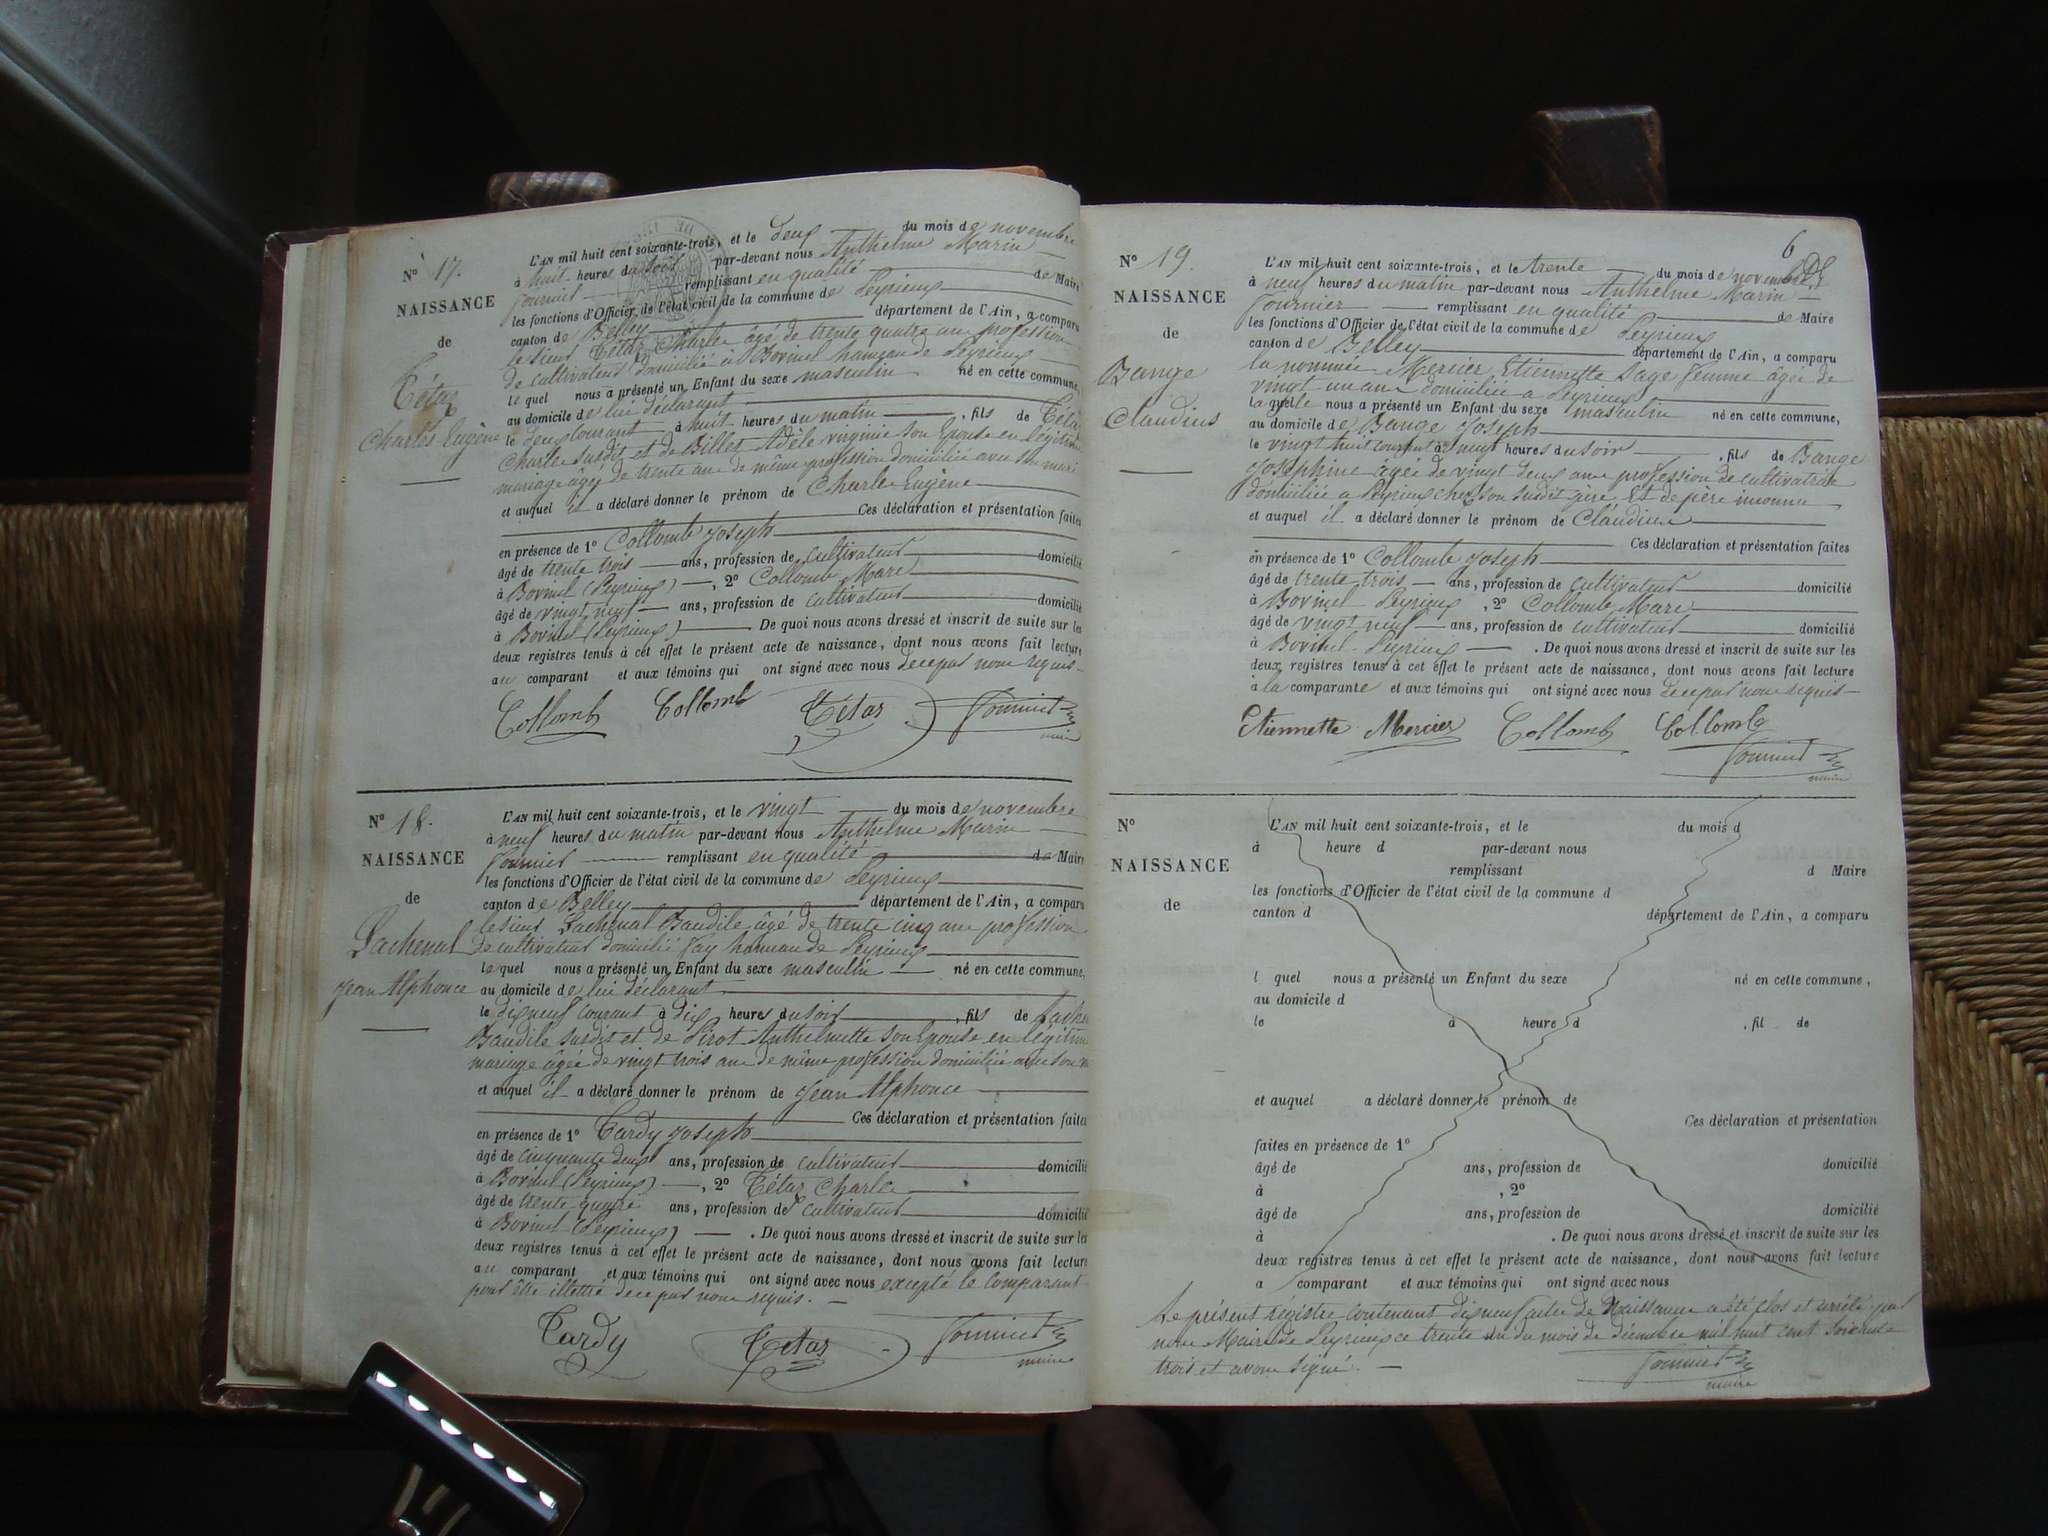 N° 17.
NAISSANCE
de
Tétaz
Charles Eugène
L'AN mil huit cent soixante-trois, et le deux du mois de novembre
à huit heures du soir par-devant nous Anthelme Marin
Fournier remplissant en qualité de Maire
les fonctions d'Officier de l'état civil de la commune de Peyrieux
canton de Belley département de l'Ain, a comparu
le sieur Tétaz Charle âgé de trente quatre ans profession
de cultivateur domicilié à Bovinel hameau de Peyrieux
le quel nous a présenté un Enfant du sexe masculin né en cette commune,
au domicile de lui déclarant
le deux courant à huit heures du matin , fils de Téta
Charle susdit et de Billet Adèle virginie son Epouse en légitime
mariage âgée de trente ans de même profession domiciliée avec son mari
et auquel il a déclaré donner le prénom de Charle Eugène
Ces déclaration et présentation faites
en présence de 1° Collomb Joseph
âgé de trente trois ans, profession de cultivateur domicilié
à Bovinel (Peyrieux) , 2° Collomb Marc
âgé de vingt neuf ans, profession de cultivateur domicilié
à Bovinel (Peyrieux) De quoi nous avons dressé et inscrit de suite sur les
deux registres tenus à cet effet le présent acte de naissance, dont nous avons fait lecture
au comparant et aux témoins qui ont signé avec nous de ce par nous requis
Collomb Collomb Tétaz Fournier
maire
N° 18.
NAISSANCE
de
Lachenal
Jean Alphonce
L'AN mil huit cent soixante-trois, et le vingt du mois de novembre
à neuf heures du matin par-devant nous Anthelme Marin
Fournier remplissant en qualité de Maire
les fonctions d'Officier de l'état civil de la commune de Peyrieux
canton de Belley département de l'Ain, a comparu
le sieur Lachenal Baudile âgé de trente cinq ans profession
de cultivateur domicilié Fay hameau de Peyrieux
le quel nous a présenté un Enfant du sexe masculin né en cette commune,
au domicile de lui déclarant
le dix neuf courant à dix heures du soir , fils de Lache
Baudile susdit et de Pirot Anthelmette son Epouse en légitime
mariage âgée de vingt trois ans de même profession domiciliée avec son m
et auquel il a déclaré donner le prénom de Jean Alphonce
Ces déclaration et présentation faites
en présence de 1° Tardy Joseph
âgé de cinquante deux ans, profession de cultivateur domicilié
à Bovinel (Peyrieux) , 2° Tétaz Charle
âgé de trente quatre ans, profession de cultivateur domicilié
à Bovinel (Peyrieux) . De quoi nous avons dressé et inscrit de suite sur les
deux registres tenus à cet effet le présent acte de naissance, dont nous avons fait lecture
au comparant et aux témoins qui ont signé avec nous excepté le comparant
pour être illettré de ce par nous requis.
Tardy Tétaz Fournier
maire
6
N° 19.
NAISSANCE
de
Bange
Claudius
L'AN mil huit cent soixante-trois, et le trente du mois de novembre
à neuf heures du matin par-devant nous Anthelme Marin
Fournier remplissant en qualité de Maire
les fonctions d'Officier de l'état civil de la commune de Peyrieux
canton de Belley département de l'Ain, a comparu
la nommée Mercier Etiennette Sage femme âgée de
vingt un ans domiciliée a Peyrieux
la quelle nous a présenté un Enfant du sexe masculin né en cette commune,
au domicile de Bange Joseph
le vingt huit courant à vingt heures du soir , fils de Bange
Josephine âgée de vingt deux ans profession de cultivatrice
domiciliée a Peyrieux chez son susdit père Et de père inconnu
et auquel il a déclaré donner le prénom de Claudius
Ces déclaration et présentation faites
en présence de 1° Collomb Joseph
âgé de trente trois ans, profession de cultivateur domicilié
à Bovinel Peyrieux , 2° Collomb Marc
âgé de vingt neuf ans, profession de cultivateur domicilié
à Bovinel Peyrieux . De quoi nous avons dressé et inscrit de suite sur les
deux registres tenus à cet effet le présent acte de naissance, dont nous avons fait lecture
à la comparante et aux témoins qui ont signé avec nous de ce par nous requis
Etiennette Mercier Collomb Collomb
Fournier
maire
N°
NAISSANCE
de
L'AN mil huit cent soixante-trois, et le du mois d
à heure d par-devant nous
remplissant d Maire
les fonctions d'Officier de l'état civil de la commune d
canton d département de l'Ain, a comparu
l quel nous a présenté un Enfant du sexe né en cette commune,
au domicile d
le à heure d , fil de
et auquel a déclaré donner le prénom de
Ces déclaration et présentation
faites en présence de 1°
âgé de ans, profession de domicilié
à , 2°
âgé de ans, profession de domicilié
à . De quoi nous avons dressé et inscrit de suite sur les
deux registres tenus à cet effet le présent acte de naissance, dont nous avons fait lecture
a comparant et aux témoins qui ont signé avec nous
Le présent régistre contenant dix neuf actes de Naissance a été clos et arrêté par
nous Maire de Peyrieux ce trente un du mois de décembre mil huit cent soixante
trois et avons signé.
Fournier
maire